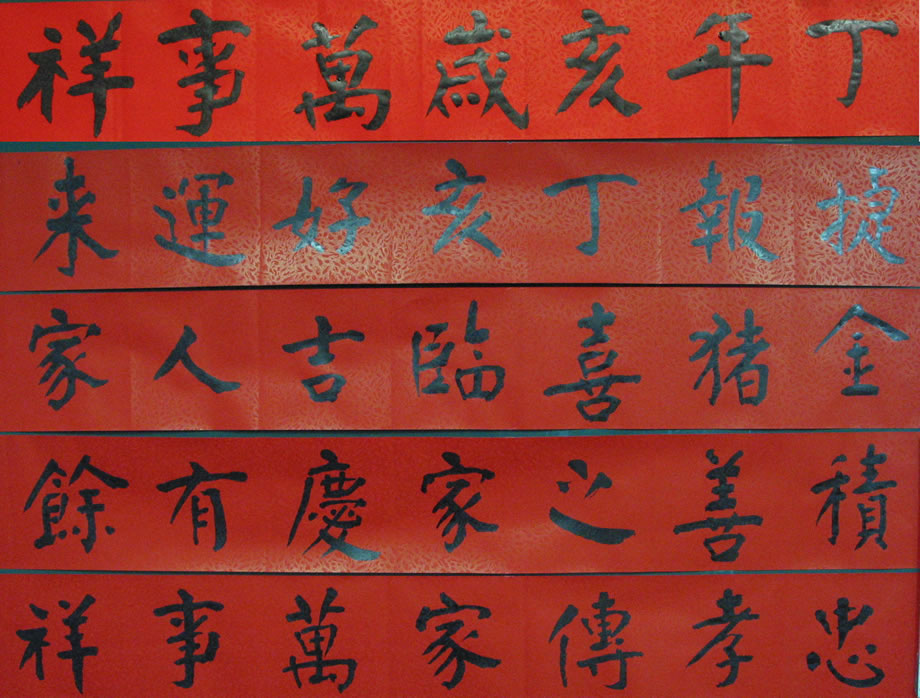 丁年亥歲萬事祥
捷報丁亥好運来
金猪喜臨吉人家
積善之家慶有餘
忠孝傳家萬事祥